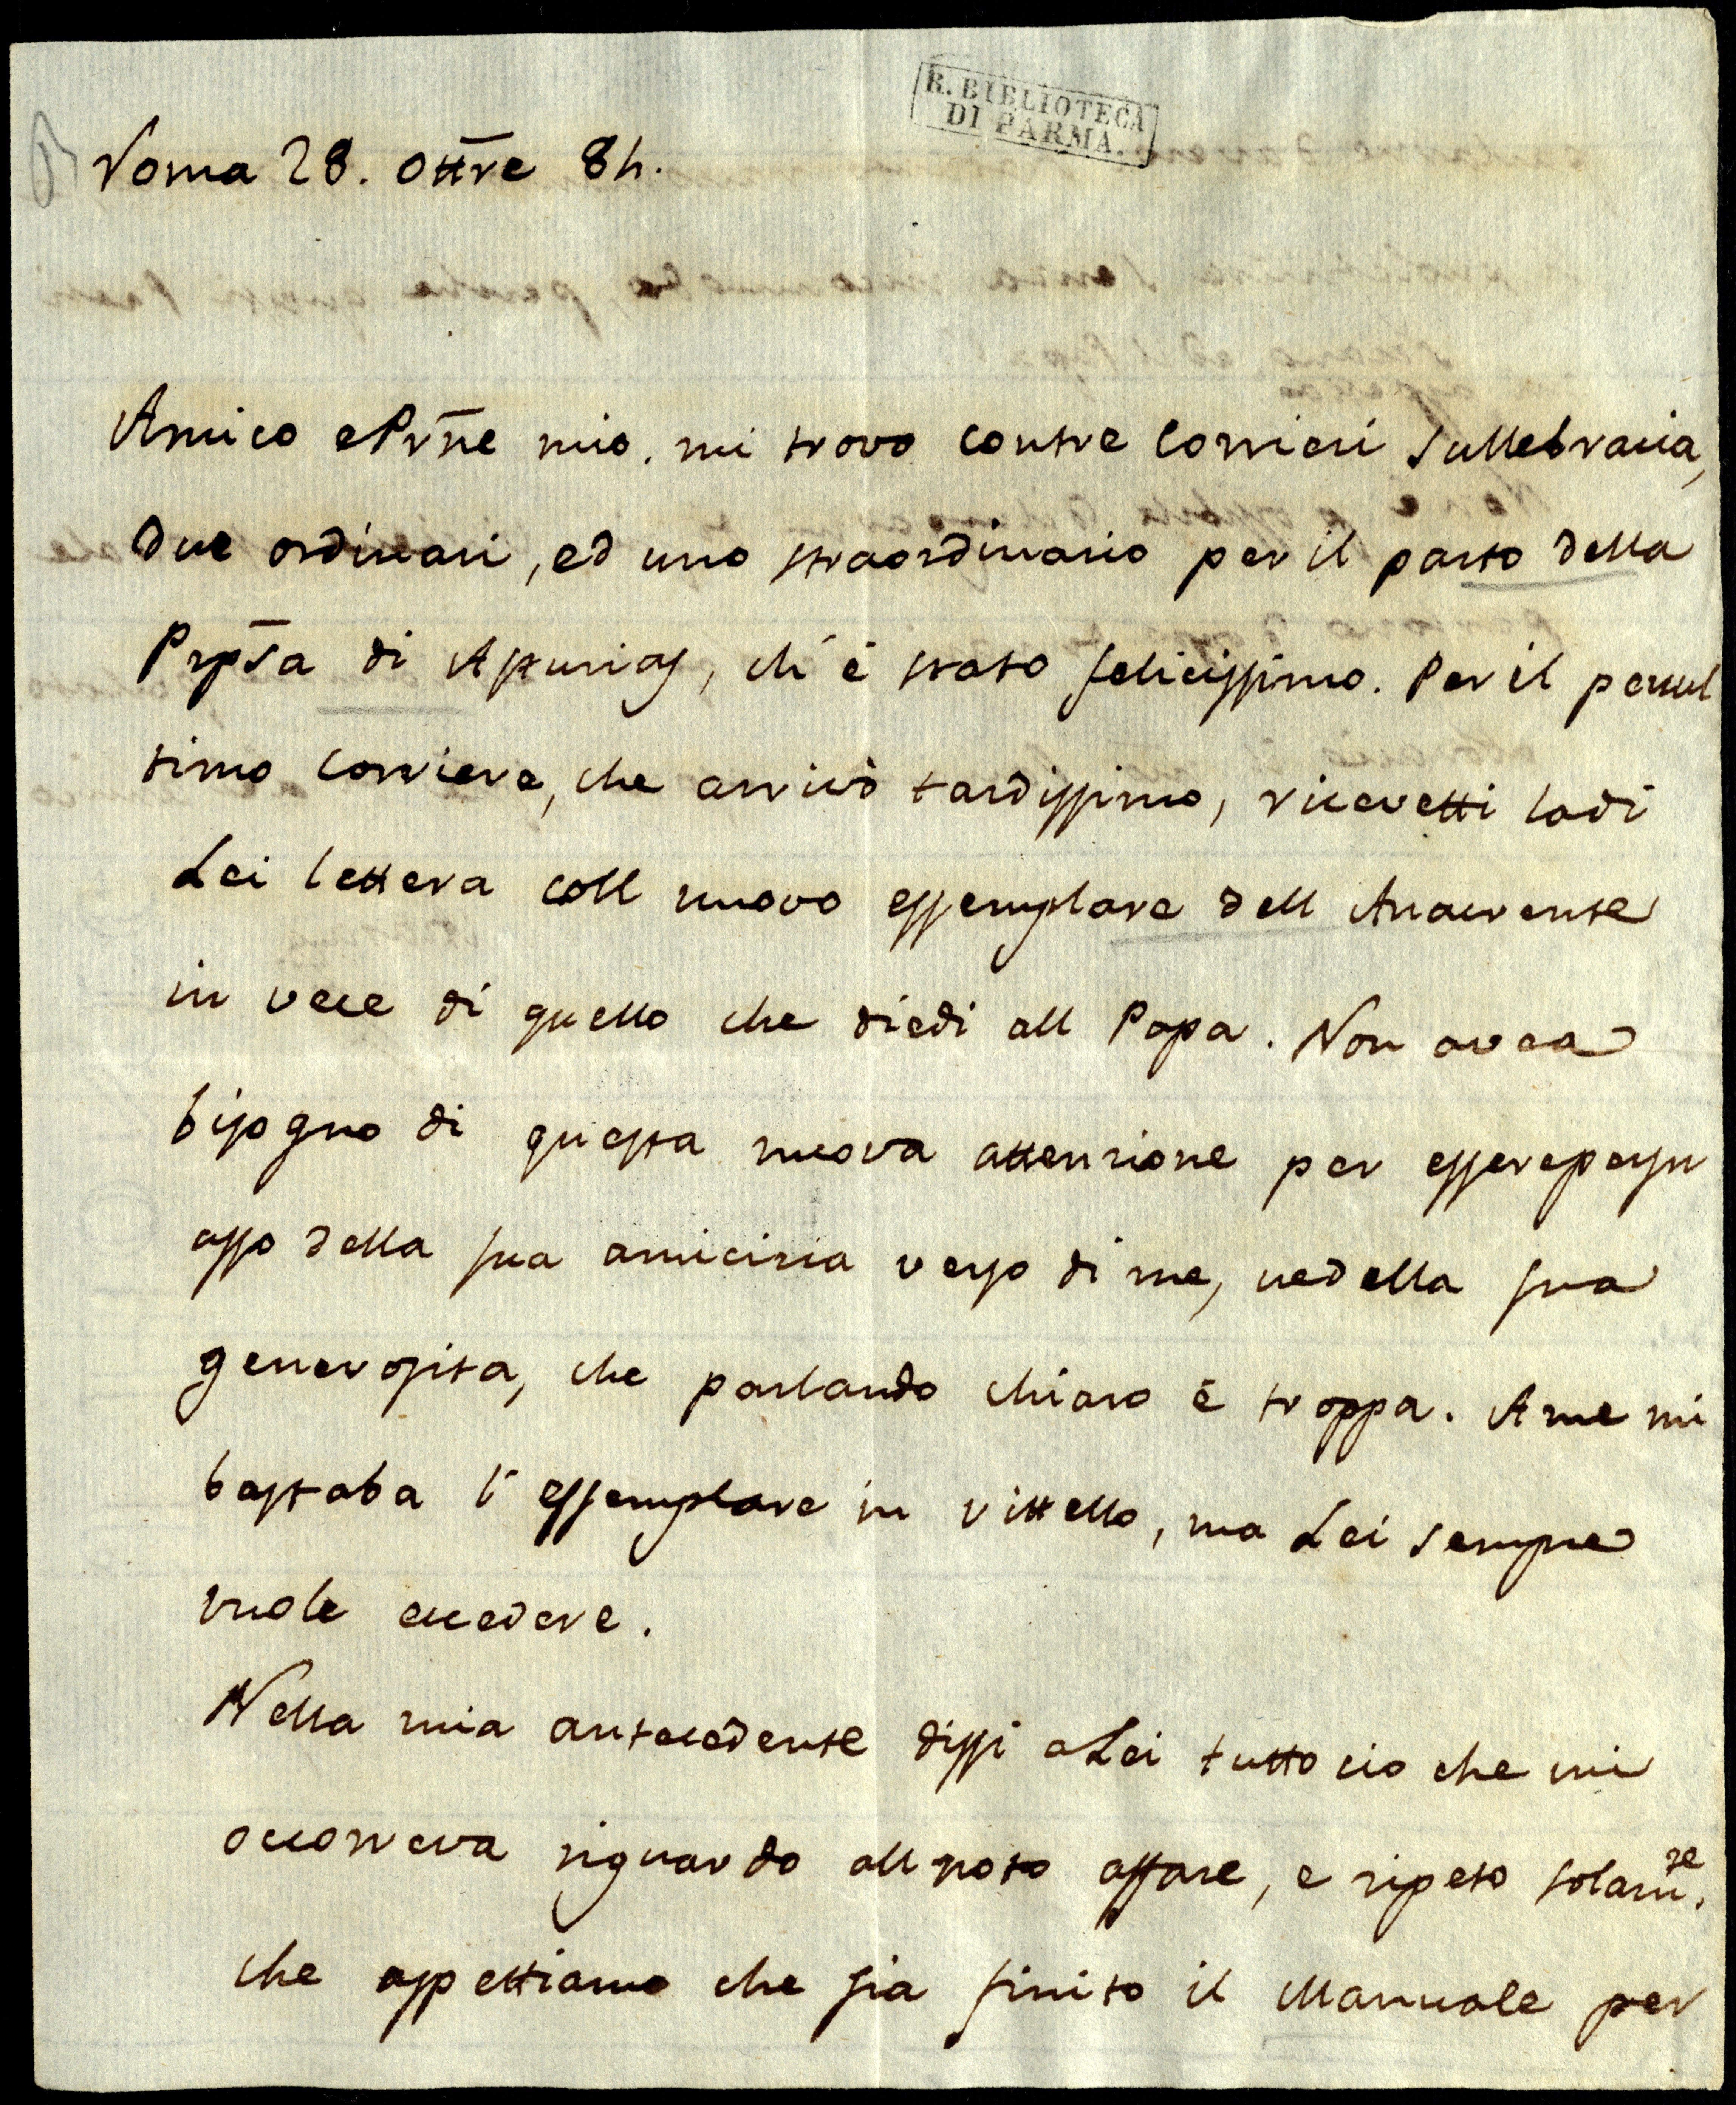 R. BIBLIOTECA
DI PARMA.
Roma 28. Ottre 84.
Amico e Prne mio. mi trovo con tre Corrieri sulle bracia,
due ordinari, ed uno straordinario per il parto della
Prpsa di Asturias, ch' é stato felicissimo. Per il penul
timo Corriere, che arrivò tardissimo, ricevetti la di
Lei lettera coll nuovo essemplare dell Anacrente
in vece di quello che diedi all Papa. Non avea
bisogno di questa nuova attenzione per essere persu
asso della sua amicizia verso di me, ne della sua
generosita, che parlando chiaro é troppa. A me mi
bastaba l' essemplare in vittello, ma Lei sempre
vuole eccedere.
Nella mia antecedente dissi a Lei tutto cio che mi
occorreva riguardo all noto affare, e ripeto solamte.
che aspettiamo che sia finito il Manuale per